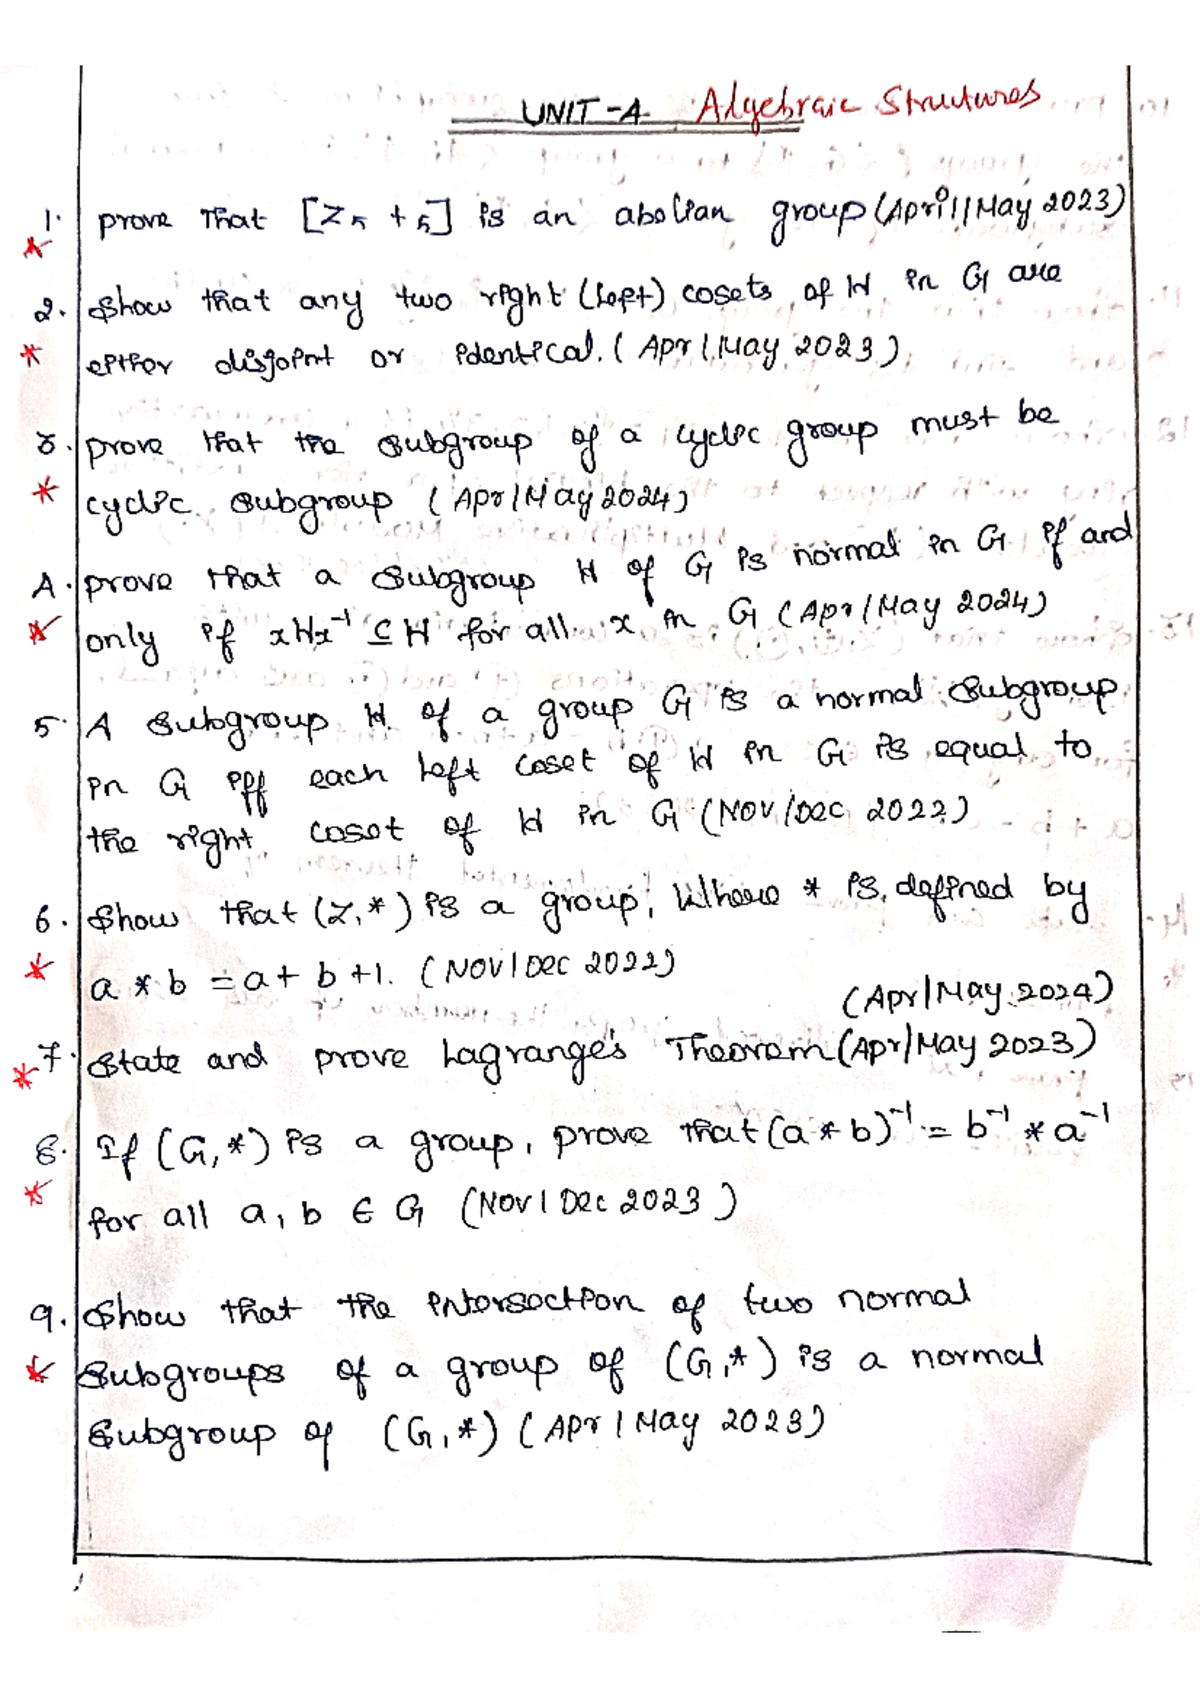 UNIT-4 Algebraic Structures
1. prove that [Z5 +5] is an abelian group (April/May 2023)
2. Show that any two right (left) cosets of H in G are
either disjoint or identical. (Apr/May 2023)
3. prove that the subgroup of a cyclic group must be
cyclic subgroup (Apr/May 2024)
4. prove that a subgroup H of G is normal in G if and
only if xHx⁻¹ ⊆ H for all x in G (Apr/May 2024)
5. A subgroup H of a group G is a normal subgroup
in G iff each left coset of H in G is equal to
the right coset of H in G (NOV/DEC 2022)
6. Show that (Z,*) is a group, Where * is defined by
a * b = a + b +1. (NOV/DEC 2022)
(Apr/May 2024)
7. State and prove Lagrange's Theorem (Apr/May 2023)
8. If (G,*) is a group, prove that (a * b)⁻¹ = b⁻¹ * a⁻¹
for all a, b ∈ G (Nov/Dec 2023)
9. Show that the intersection of two normal
Subgroups of a group of (G,*) is a normal
Subgroup of (G,*) (Apr/May 2023)